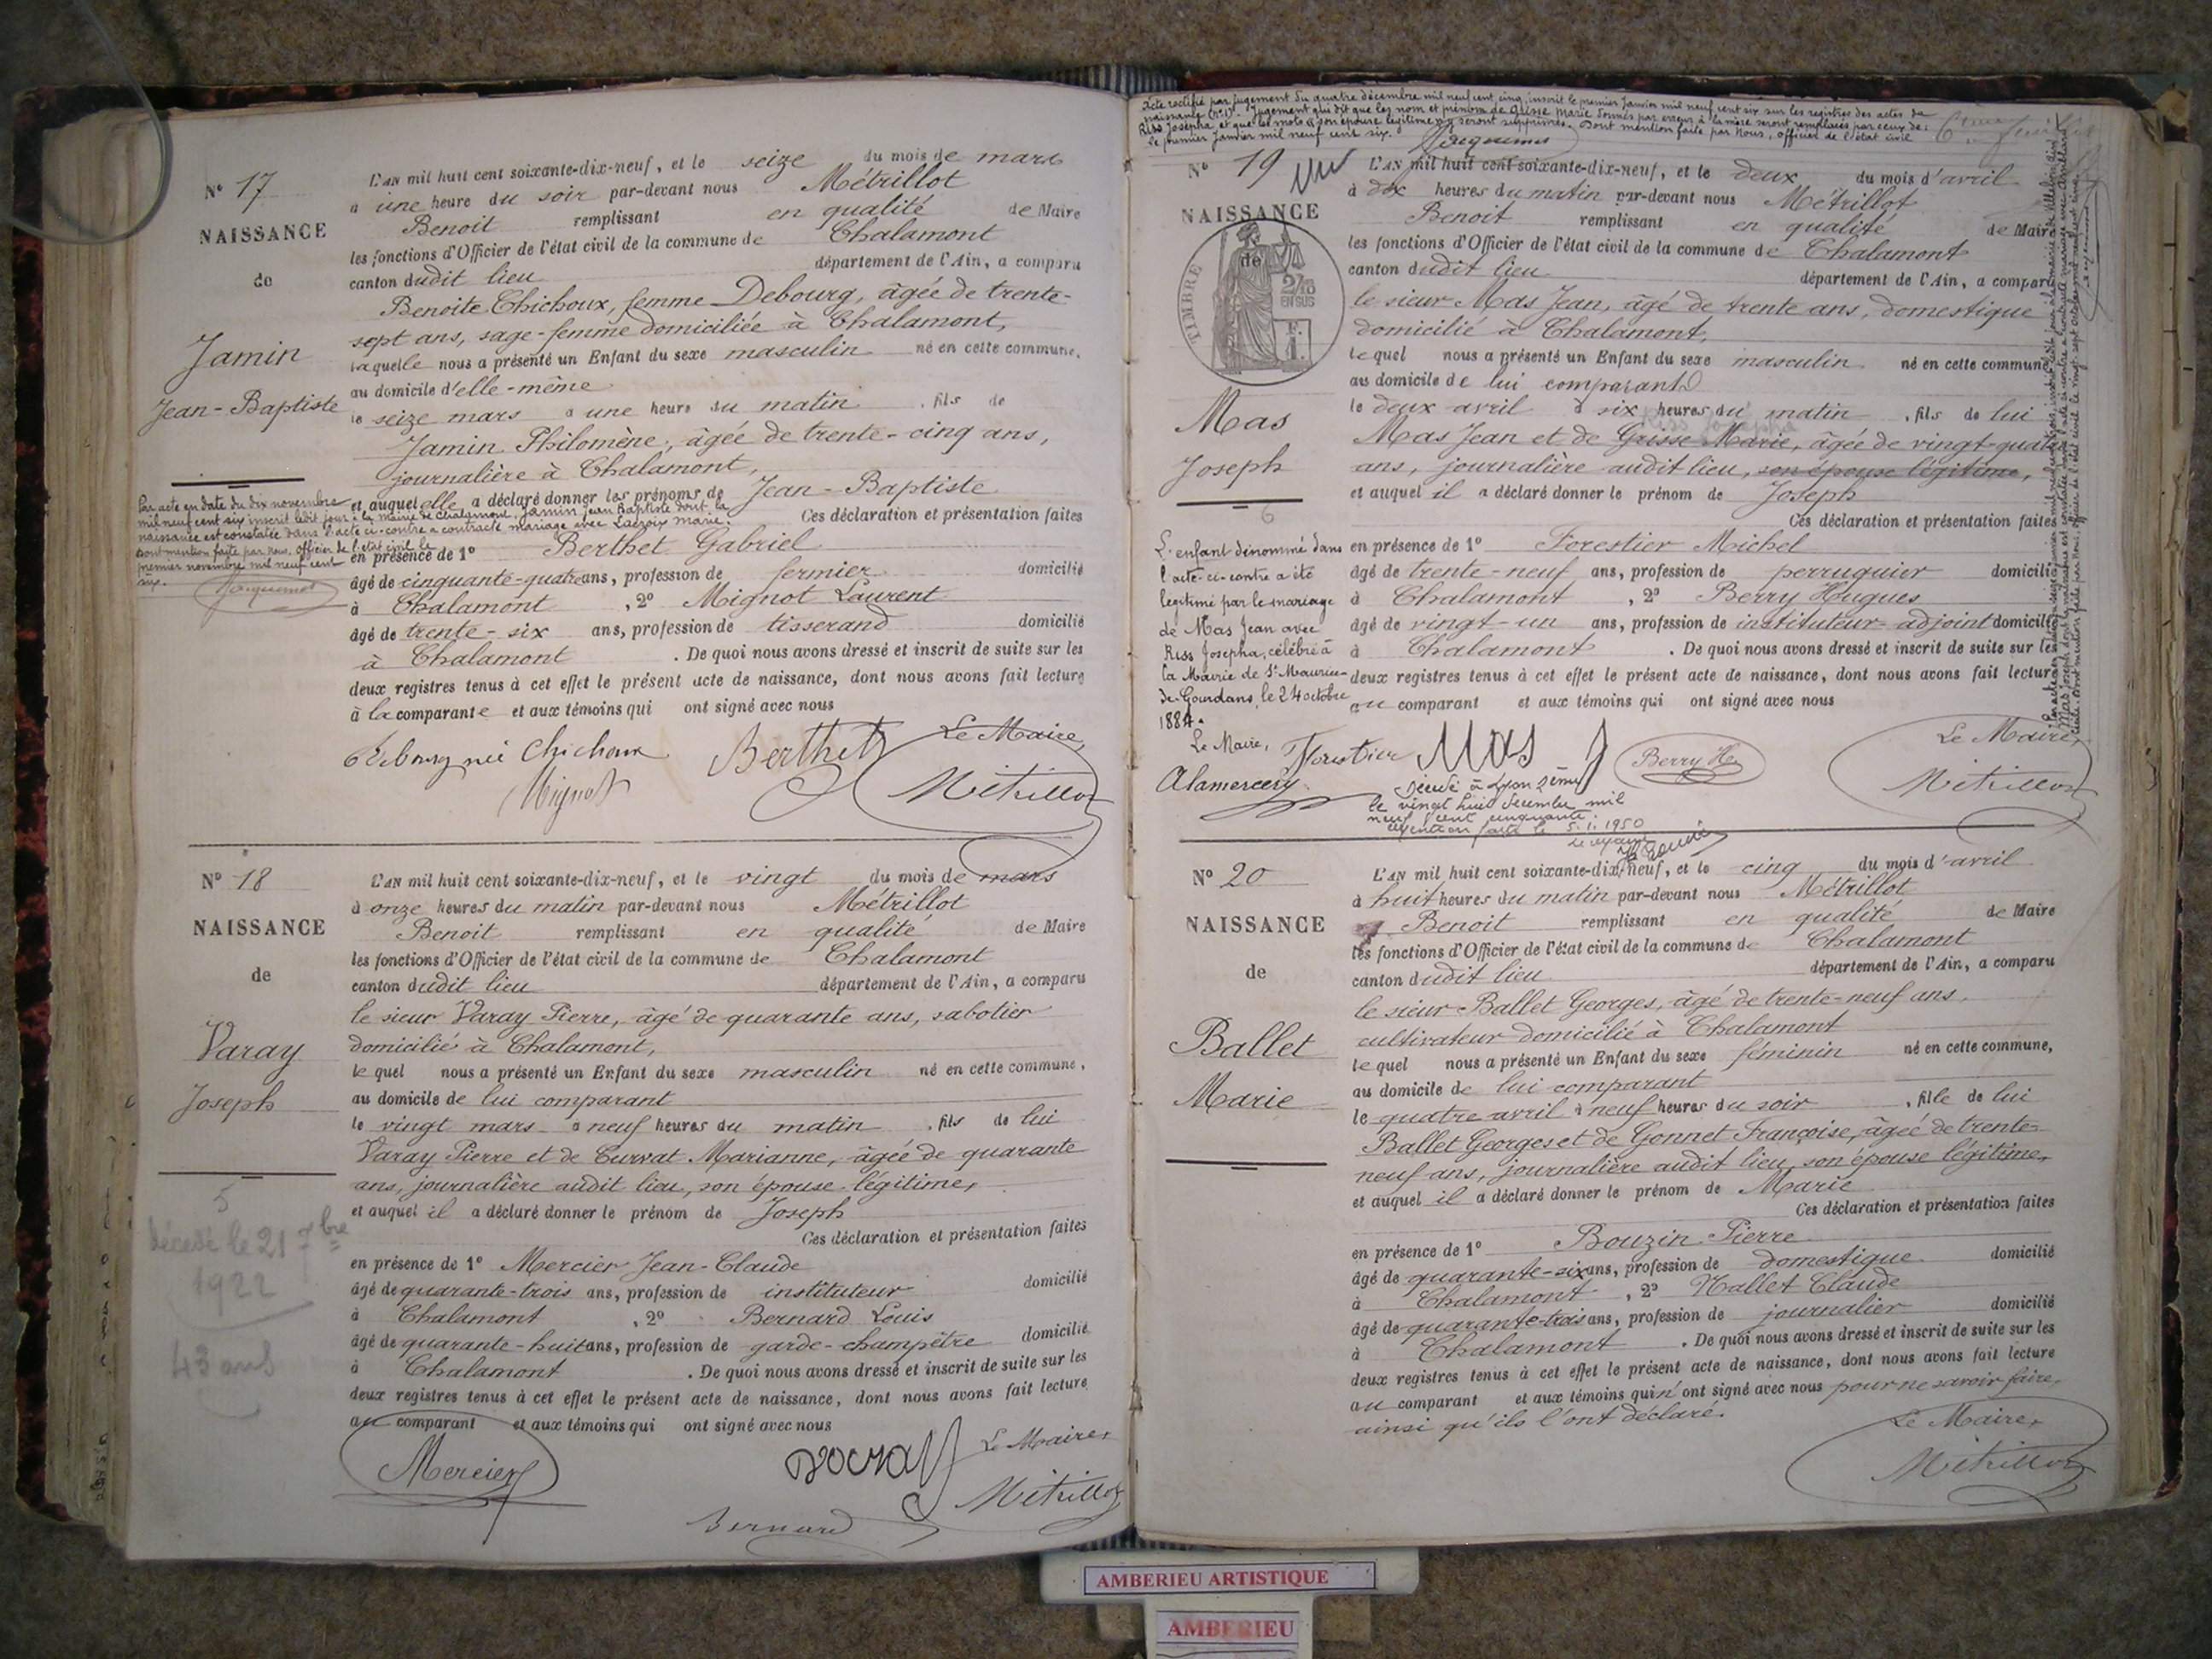 N° 17
NAISSANCE
de
Jamin
Jean-Baptiste
L'AN mil huit cent soixante-dix-neuf, et le seize du mois de mars
à une heure du soir par-devant nous Métrillot
Benoit remplissant en qualité de Maire
les fonctions d'Officier de l'état civil de la commune de Chalamont
canton dudit lieu département de l'Ain, a comparu
Benoite Chichoux, femme Debourg, âgée de trente-
sept ans, sage-femme domiciliée à Chalamont,
laquelle nous a présenté un Enfant du sexe masculin né en cette commune,
au domicile d'elle-même
le seize mars à une heure du matin, fils de
Jamin Philomène, âgée de trente-cinq ans,
journalière à Chalamont,
et auquel elle a déclaré donner les prénoms de Jean-Baptiste
Ces déclaration et présentation faites
en présence de 1° Berthet Gabriel
âgé de cinquante-quatre ans, profession de fermier domicilié
à Chalamont, 2° Mignot Laurent
âgé de trente-six ans, profession de tisserand domicilié
à Chalamont. De quoi nous avons dressé et inscrit de suite sur les
deux registres tenus à cet effet le présent acte de naissance, dont nous avons fait lecture
à la comparante et aux témoins qui ont signé avec nous
Par acte en date du dix novembre
mil neuf cent six inscrit ledit jour à la mairie de Chalamont, Jamin Jean Baptiste dont la
naissance est constatée dans l'acte ci-contre a contracté mariage avec Lacroix Marie.
Dont mention faite par nous, officier de l'état civil le
premier novembre mil neuf cent
six.
Debourg née Chichoux Berthet Le Maire,
Mignot Métrillot
N° 18
NAISSANCE
de
Varay
Joseph
L'AN mil huit cent soixante-dix-neuf, et le vingt du mois de mars
à onze heures du matin par-devant nous Métrillot
Benoit remplissant en qualité de Maire
les fonctions d'Officier de l'état civil de la commune de Chalamont
canton dudit lieu département de l'Ain, a comparu
le sieur Varay Pierre, âgé de quarante ans, sabotier
domicilié à Chalamont,
lequel nous a présenté un Enfant du sexe masculin né en cette commune,
au domicile de lui comparant
le vingt mars à neuf heures du matin, fils de lui
Varay Pierre et de Curvat Marianne, âgée de quarante
ans, journalière audit lieu, son épouse légitime,
et auquel il a déclaré donner le prénom de Joseph
Ces déclaration et présentation faites
en présence de 1° Mercier Jean-Claude
âgé de quarante-trois ans, profession de instituteur domicilié
à Chalamont, 2° Bernard Louis
âgé de quarante-huit ans, profession de garde-champêtre domicilié
à Chalamont. De quoi nous avons dressé et inscrit de suite sur les
deux registres tenus à cet effet le présent acte de naissance, dont nous avons fait lecture
au comparant et aux témoins qui ont signé avec nous
5
décédé le 21 7bre
1922
43 ans
Mercier Varay Le Maire,
Bernard Métrillot
Acte rectifié par jugement du quatre décembre mil neuf cent cinq, inscrit le premier Janvier mil neuf cent six sur les registres des actes de
naissance (n°1). Jugement qui dit que les nom et prénom de Grisse Marie donnés par erreur à la mère seront remplacés par ceux de:
Riss Josepha et que les mots « son épouse légitime » y seront supprimés. Dont mention faite par Nous, officier de l'état civil
le premier Janvier mil neuf cent six.
N° 19
NAISSANCE
de
TIMBRE
2/10
EN SUS
Mas
Joseph
L'AN mil huit cent soixante-dix-neuf, et le deux du mois d'avril
à dix heures du matin par-devant nous Métrillot
Benoit remplissant en qualité de Maire
les fonctions d'Officier de l'état civil de la commune de Chalamont
canton dudit lieu département de l'Ain, a comparu
le sieur Mas Jean, âgé de trente ans, domestique
domicilié à Chalamont,
lequel nous a présenté un Enfant du sexe masculin né en cette commune
au domicile de lui comparant
le deux avril à six heures du matin, fils de lui
Riss Josepha
Mas Jean et de Grisse Marie, âgée de vingt-quatre
ans, journalière audit lieu, son épouse légitime,
et auquel il a déclaré donner le prénom de Joseph
Ces déclaration et présentation faites
en présence de 1° Forestier Michel
âgé de trente-neuf ans, profession de perruquier domicilié
à Chalamont, 2° Berry Hugues
âgé de vingt-un ans, profession de instituteur-adjoint domicilié
à Chalamont. De quoi nous avons dressé et inscrit de suite sur les
deux registres tenus à cet effet le présent acte de naissance, dont nous avons fait lecture
au comparant et aux témoins qui ont signé avec nous
6
L'enfant dénommé dans
l'acte ci-contre a été
légitimé par le mariage
de Mas Jean avec
Riss Josepha, célébré à
la Mairie de St Maurice-
de-Gourdans, le 24 octobre
1884.
Le Maire,
Alamercery
Forestier Mas Berry H. Le Maire,
Métrillot
Décédé à Lyon 2ème
le vingt huit décembre mil
neuf cent cinquante.
Mention faite le 5.1.1950
N° 20
NAISSANCE
de
Ballet
Marie
L'AN mil huit cent soixante-dix-neuf, et le cinq du mois d'avril
à huit heures du matin par-devant nous Métrillot
Benoit remplissant en qualité de Maire
les fonctions d'Officier de l'état civil de la commune de Chalamont
canton dudit lieu département de l'Ain, a comparu
le sieur Ballet Georges, âgé de trente-neuf ans,
cultivateur domicilié à Chalamont
lequel nous a présenté un Enfant du sexe féminin né en cette commune,
au domicile de lui comparant
le quatre avril à neuf heures du soir, fille de lui
Ballet Georges et de Gonnet Françoise, âgée de trente-
neuf ans, journalière audit lieu, son épouse légitime,
et auquel il a déclaré donner le prénom de Marie
Ces déclaration et présentation faites
en présence de 1° Bouzin Pierre
âgé de quarante-six ans, profession de domestique domicilié
à Chalamont, 2° Hallet Claude
âgé de quarante-trois ans, profession de journalier domicilié
à Chalamont. De quoi nous avons dressé et inscrit de suite sur les
deux registres tenus à cet effet le présent acte de naissance, dont nous avons fait lecture
au comparant et aux témoins qui n'ont signé avec nous pour ne savoir faire,
ainsi qu'ils l'ont déclaré.
Le Maire,
Métrillot
AMBERIEU ARTISTIQUE
AMBERIEU